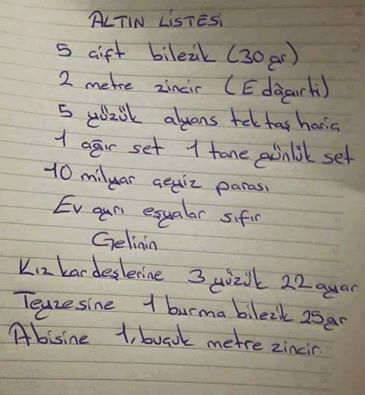 ALTIN LİSTESİ
5 çift bilezik (30 gr)
2 metre zincir (Edağırti)
5 yüzük alyans tektaş hariç
1 ağır set 1 tane günlük set
10 milyar çeyiz parası
Ev ayrı eşyalar sıfır
Gelinin
Kız kardeşlerine 3 yüzük 22 ayar
Teyzesine 1 burma bilezik 25 gr
Abisine 1,buçuk metre zincir.